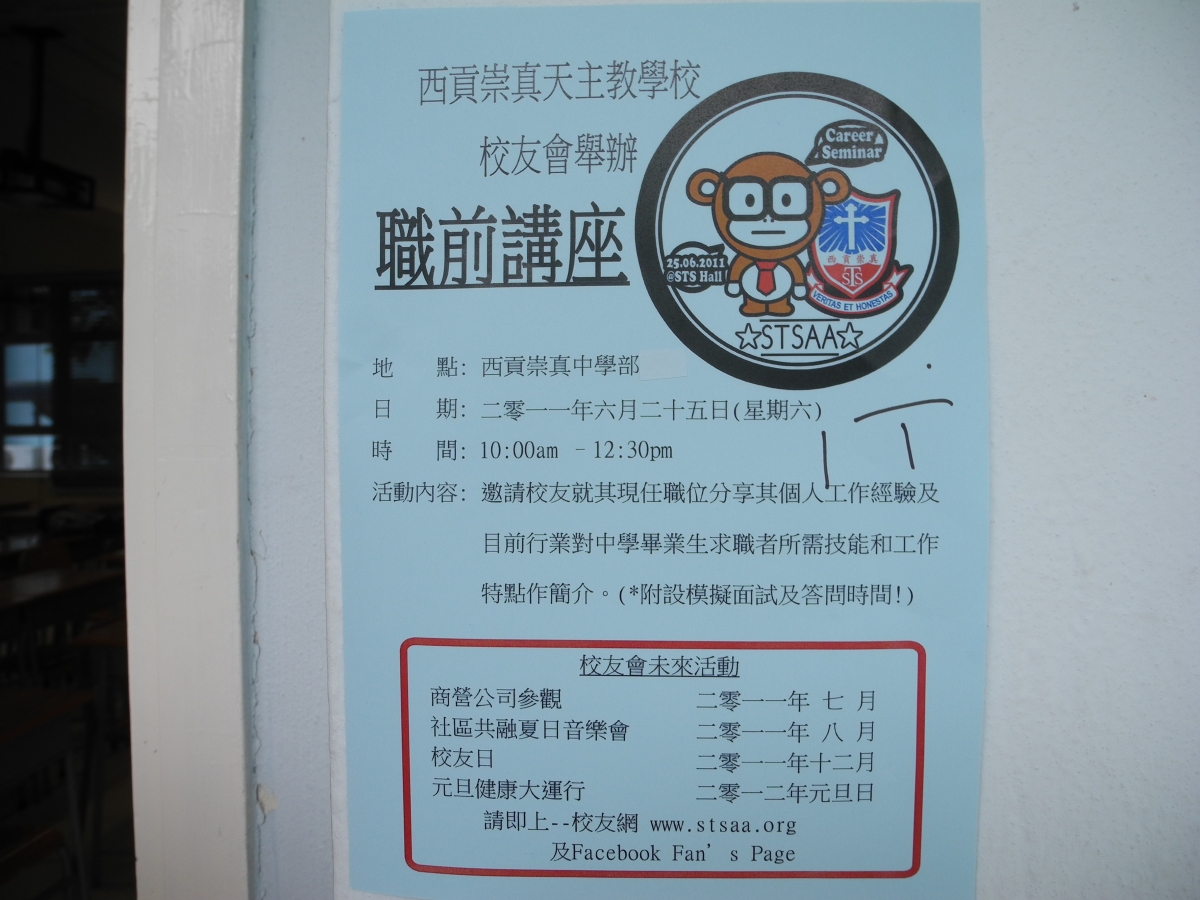 西貢崇真天主教學校
校友會舉辦
職前講座
Career
Seminar
25.06.2011
@STS Hall
西貢崇真
STS
VERITAS ET HONESTAS
☆STSAA☆
地 點: 西貢崇真中學部
日 期: 二零一一年六月二十五日(星期六)
時 間: 10:00am - 12:30pm
活動內容: 邀請校友就其現任職位分享其個人工作經驗及
目前行業對中學畢業生求職者所需技能和工作
特點作簡介。(*附設模擬面試及答問時間!)
校友會未來活動
商營公司參觀 二零一一年 七 月
社區共融夏日音樂會 二零一一年 八 月
校友日 二零一一年十二月
元旦健康大運行 二零一二年元旦日
請即上--校友網 www.stsaa.org
及Facebook Fan's Page